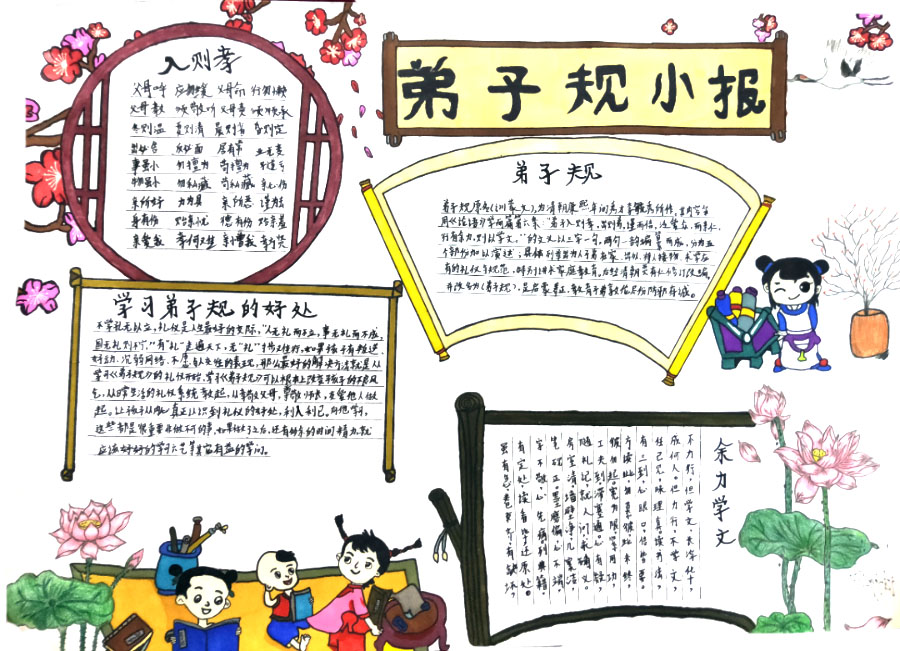 弟子规小报
入则孝
父母呼 应勿缓 父母命 行勿懒
父母教 须敬听 父母责 须顺承
冬则温 夏则清 晨则省 昏则定
出必告 反必面 居有常 业无变
事虽小 勿擅为 苟擅为 子道亏
物虽小 勿私藏 苟私藏 亲心伤
亲所好 力为具 亲所恶 谨为去
身有伤 贻亲忧 德有伤 贻亲羞
亲爱我 孝何难 亲憎我 孝方贤
弟子规
弟子规原名《训蒙文》,为清朝康熙年间秀才李毓秀所作,其内容
用《论语》学而篇第六条:"弟子入则孝,出则弟,谨而信,泛爱众,而亲仁,
行有余力,则以学文。"的文义以三字一句,两句一韵编纂而成,分为五
个部份加以演述;具体列举出为人子弟在家、出外、待人接物、求学应
有的礼仪与规范,特别讲求家庭教育,后经清朝贾有仁修订改编
并改名为《弟子规》,是启蒙养正,教育子弟敦伦尽份防邪存诚。
学习弟子规的好处
不学礼无以立,礼仪是人生最好的实际,"人无礼而不立,事无礼而不成,
国无礼则不宁,"有"礼"走遍天下,无"礼"寸步难行,如果孩子有叛逆、
好动、沉的网络、不愿与人交往的表现,那么最好的解决方法就是从
学《弟子规》的礼仪开始,学《弟子规》可以根本上改变孩子的不良习
气,从日常生活的礼仪系统教起,从孝敬父母,尊敬师长,友爱他人做
起。让孩子从内心真正认识到礼仪的好处,利人利己,而他学习,
这些都是紧重要非做不可的事,如果做了之后,还有好多的时间精力,就
应该好好的学习六艺等其它有益的学问。
余力学文
不力行,但学文,长浮华,
成何人。但力行,不学文,
任己见,昧理真。读书法,
有三到,心眼口,信皆要。
方读此,勿慕彼,此未终,
彼勿起。宽为限,紧用功,
工夫到,滞塞通。心有疑,
随札记,就人问,求确义。
房室清,墙壁净,几案洁,
笔砚正。墨磨偏,心不端,
字不敬,心先病。列典籍,
有定处,读看毕,还原处。
虽有急,卷束齐,有缺坏,